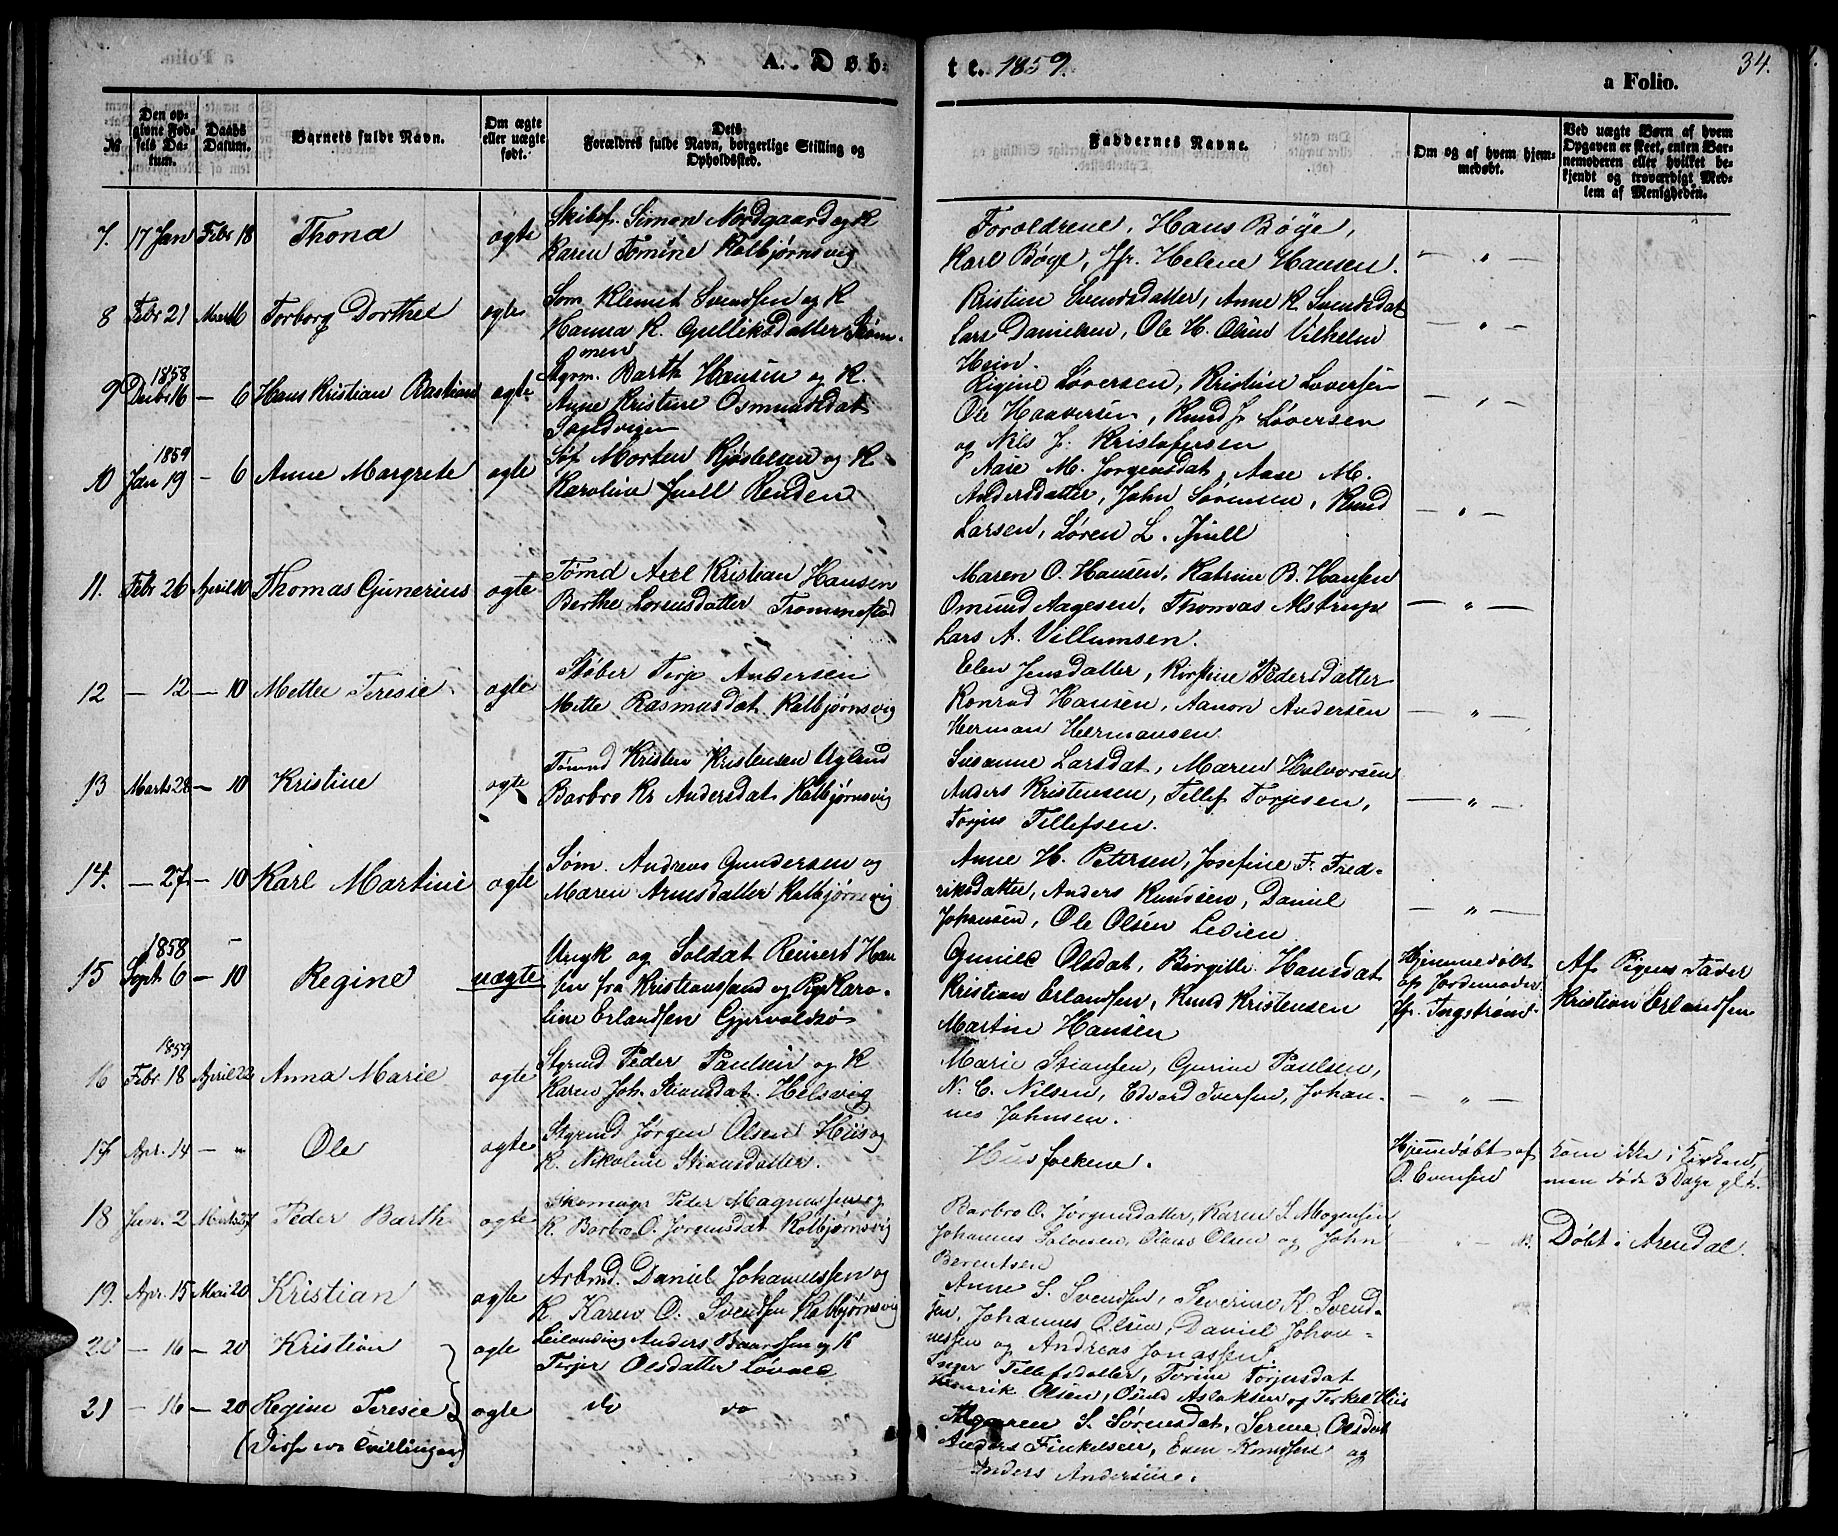 A. Døb-
te. 1859.
34.
a Folio.
№
Den op-
givne Fød-
sels Da-
tum.
Daabs
Datum.
Barnets fulde Navn.
Om ægte
eller uægte
født.
Dets
Forældres fulde Navn, borgerlige Stilling og
Opholdssted.
Faddernes Navne.
Om og af hvem hjem-
medøbt.
Ved uægte Børn af hvem
Opgaven er skeet, enten Bar-
nemoderen eller hvilket be-
kjendt og troværdigt Med-
lem af Menigheden.
7. 17 Jan Febr 18 Thona ægte
Skibsf. Simon Nordgaard og K
Karen Tomine Kolbjørnsvig
Forældrene, Hans Bøge,
Karl Bøge, Jfr. Helene Hansen.
— " —
8 Febr 21 Marts 6 Torborg Dorthee ægte
Søm Klemet Svendsen og K
Hanna K. Gulleksdatter Strøm-
men
Kristine Svendsdatter, Anne K Svendsdat
Lars Danielsen, Ole H. Olsen Vilhelm
Hein.
— " —
9 1858 Decbr 16 — 6 Hans Kristian Bastian ægte
Styrm. Barth Hansen og K.
Anne Kristine Osmundsdat
Sandvigen
Regine Løversen, Kristine Loversen
Ole Haaversen, Knud J. Løversen
og Nils J. Kristofersen
— " —
10 1859 Jan 19 — 6 Anne Margrete ægte
Morten Kjøstelsen og K
Karoline Juell Renden
Aase M. Jørgensdat, Aase M.
Andersdatter, John Sørensen, Knud
Larsen, Søren L. Juell
— " —
11. Febr 26 April 10 Thomas Gunerius ægte
Tømd Axel Kristian Hansen
Berthe Lorensdatter Trommestad
Maren O. Hansen, Katrine B. Hansen
Omund Aagesen, Thomas Alstrup
Lars A. Villumsen.
— " —
12 — 12 — 10 Mette Teresie ægte
Støber Terje Andersen
Mette Rasmusdat Kolbjørnsvig
Elen Jensdatter, Kirstine Pedersdatter
Konrad Hansen, Aanon Andersen
Herman Hermansen.
— " —
13 Marts 28 — 10 Kristine ægte
Tømmd Kristen Kristensen Uglend
Barbro Kr Andersdat Kolbjørnsvig
Susanne Larsdat, Maren Halvorsen
Anders Kristensen, Tellef Torjesen,
Torjus Tellefsen.
— " —
14. — 27 — 10 Karl Martini ægte
Søm. Andreas Gundersen og
Maren Arnesdatter Kolbjørnsvig
Anne H. Petersen, Josefine F. Fred-
riksdatter, Anders Knudsen, Daniel
Johansen, Ole Olsen Ledien
— " —
15 1858 Sept 6 — 10 Regine uægte
Ungk og Soldat Reinert Han
sen fra Kristianssand og Pige Karo-
line Erlandsen Gjervoldsø
Gunild Olsdat, Birgitte Hansdat
Kristian Erlandsen, Knud Kristensen
Martin Hansen
Hjemmedøbt
af Jordemoder
Jfr. Ingstrøm
Af Pigens Fader
Kristian Erlandsen
16 1859 Febr 18 April 22 Anna Marie ægte
Styrmd Peder Paulsen og K
Karen Joh. Stiansdat. Helsvig
Marie Stiansen, Gurine Paulsen,
N. C. Nilsen, Edvard Iversen, Johan-
nes Johnsen.
— " —
17 Apr. 14 — " Ole ægte
Styrmd Jørgen Olsen Hiis og
K. Nikoline Stiansdatter.
Husfolkene.
Hjemmedøbt af
O. Evensen
Kom ikke i Kirken,
men døde 3 Dage gl.
18 Jan. 2 Marts 27 Peder Barth ægte
Skomager Peder Magnussen og
K. Barbro O. Jørgensdat Kolbjørnsvig
Barbro O. Jørgensdatter, Karen S. Mogensen
Johannes Salvesen, Olaus Olsen og John
Berentsen
Døbt i Arendal.
19. Apr. 15 Mai 20 Kristian ægte
Arbmd. Daniel Johannessen og
K Karen O. Svendsen Kolbjørnsvig
Anne S. Svendsen, Severine K. Svend-
sen, Johannes Olsen, Daniel Johan-
nessen og Andreas Jonassen.
20 — 16 — 20 Kristian ægte
Leilending Anders Baardsen og K
Terjer Olsdatter Løvold
Inger Tellefsdatter, Torine Torjusdat
Henrik Olsen, Osuld Aslaksen og Terkel Hiis
21 — 16 — 20 Regine Teresie ægte
(Disse ere Tvillinger)
do do
Maren S. Sørensdat, Serine Olsdat
Anders Finkelsen, Even Knudsen og
Anders Andersen.